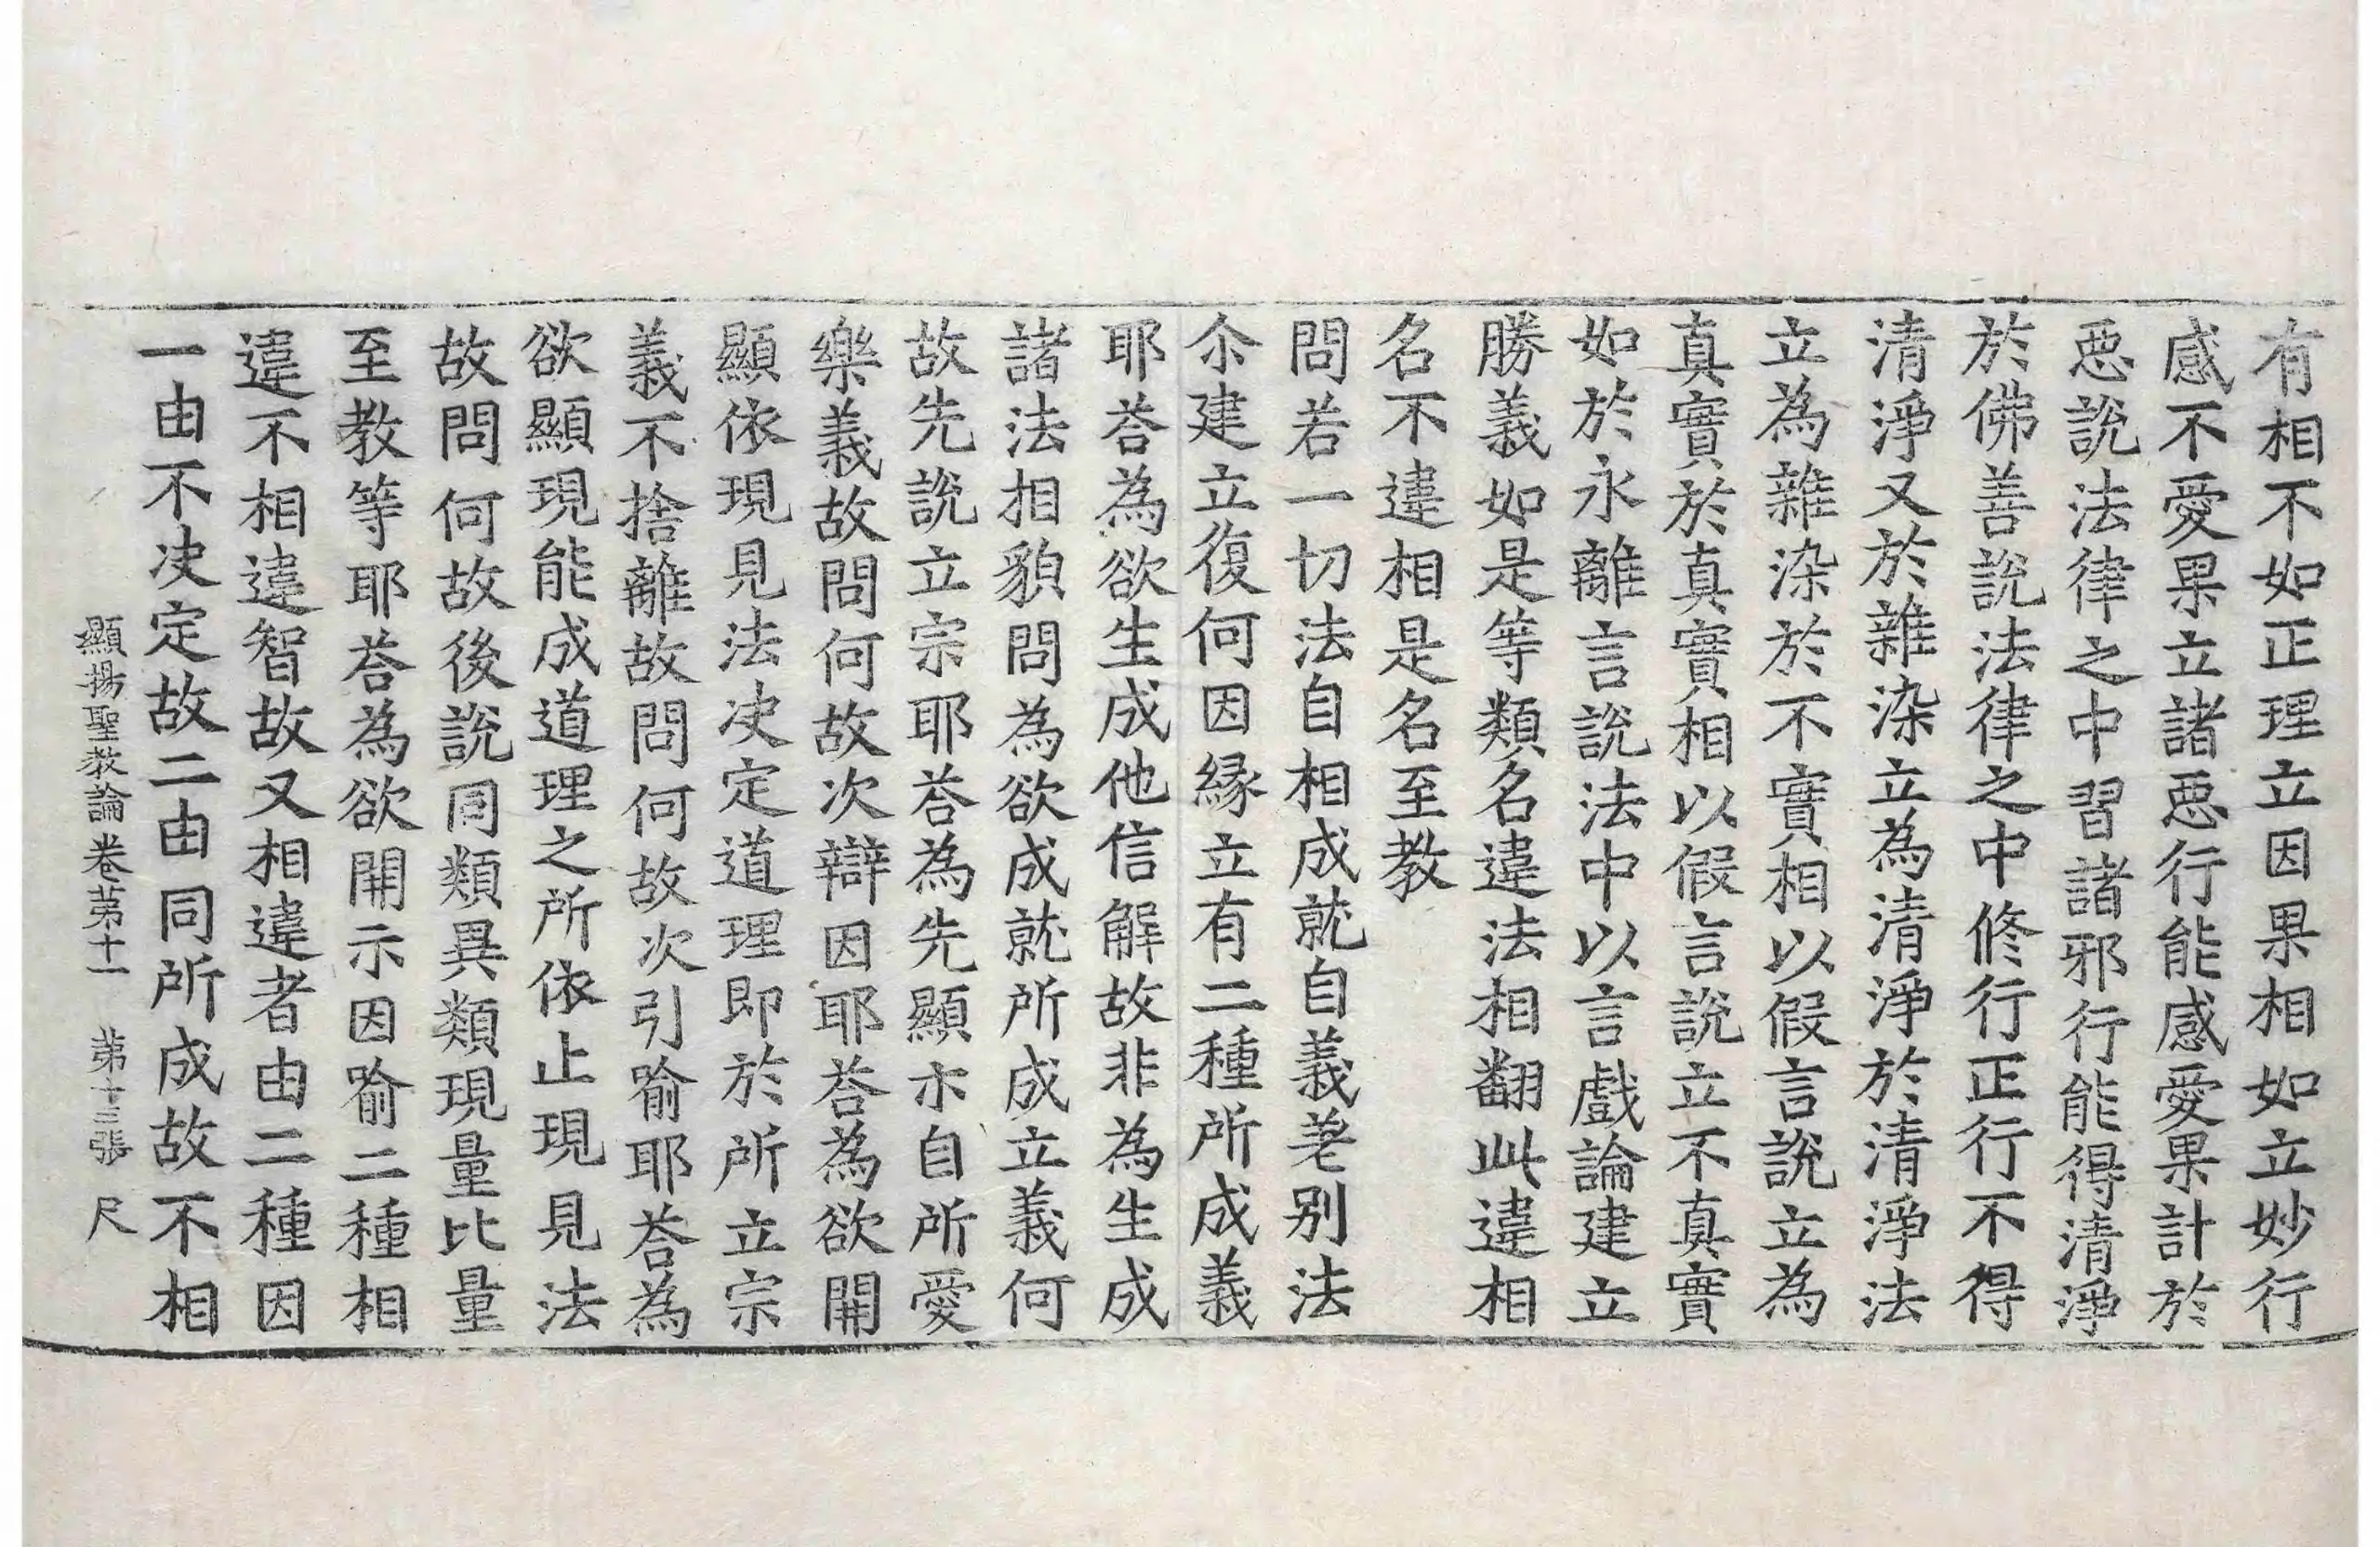 有相不如正理立因果相如立妙行
感不愛果立諸惡行能感愛果計於
惡說法律之中習諸邪行能得清淨
於佛善說法律之中修行正行不得
清淨又於雜染立為清淨於清淨法
立為雜染於不實相以假言說立為
真實於真實相以假言說立不真實
如於永離言說法中以言戲論建立
勝義如是等類名違法相翻此違相
名不違相是名至教
問若一切法自相成就自義㐌別法
尒建立復何因緣立有二種所成義
耶荅為欲生成他信解故非為生成
諸法相貌問為欲成就所成立義何
故先說立宗耶荅為先顯示自所愛
樂義故問何故次辯因耶荅為欲開
顯依現見法决定道理即於所立宗
義不捨離故問何故次引喻耶荅為
欲顯現能成道理之所依止現見法
故問何故後說同類異類現量比量
至教等耶荅為欲開示因喻二種相
違不相違智故又相違者由二種因
一由不决定故二由同所成故不相
顯揚聖教論卷苐十一　苐十三張　尺